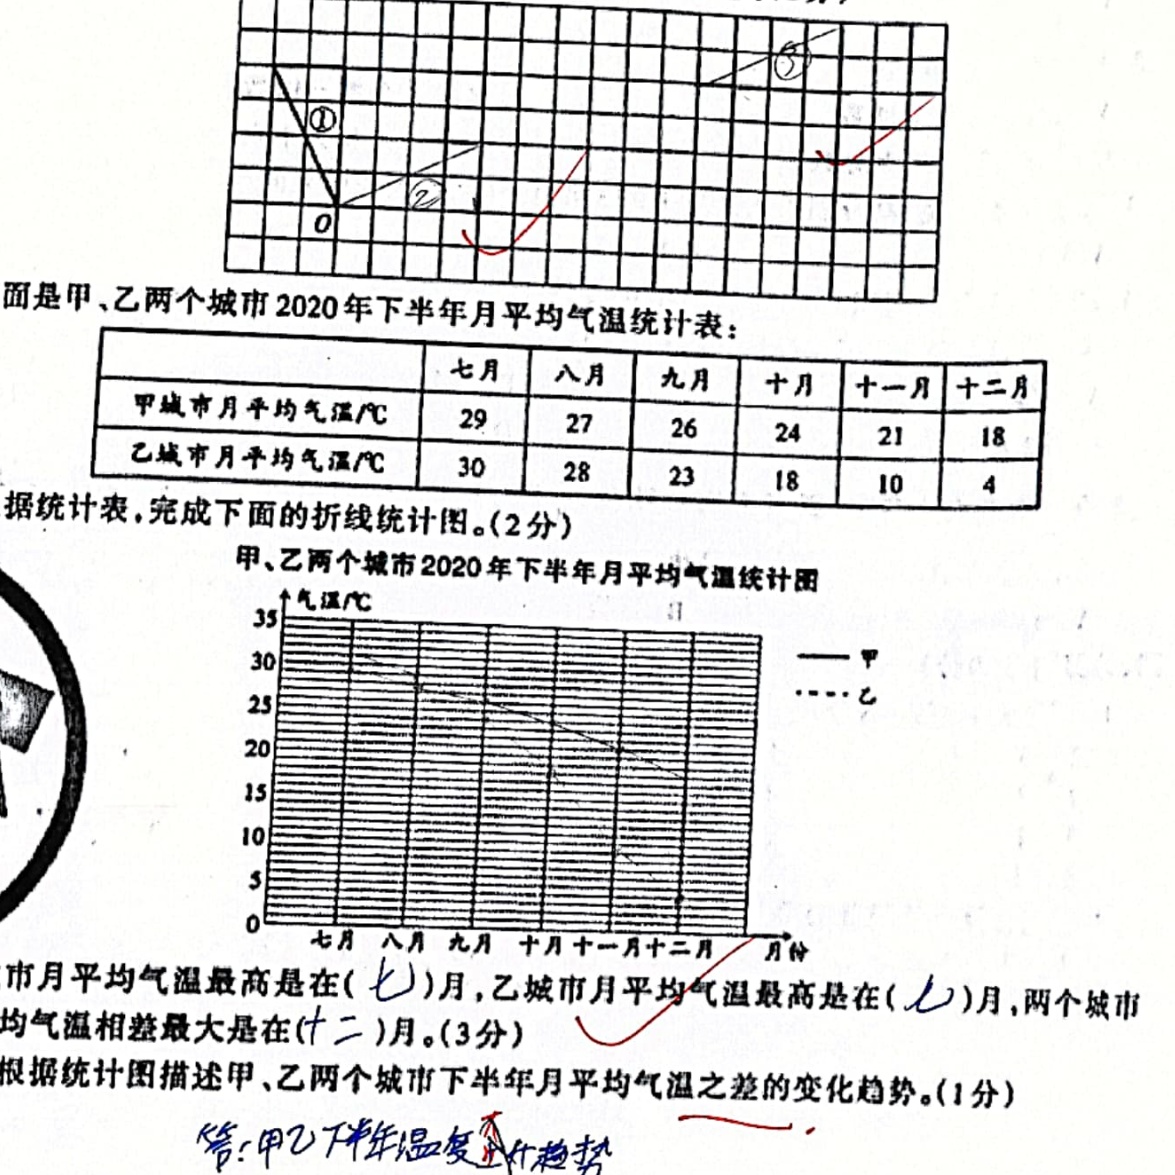 ①
②
③
O
面是甲、乙两个城市2020年下半年月平均气温统计表:
七月 八月 九月 十月 十一月 十二月
甲城市月平均气温/℃ 29 27 26 24 21 18
乙城市月平均气温/℃ 30 28 23 18 10 4
据统计表,完成下面的折线统计图。(2分)
甲、乙两个城市2020年下半年月平均气温统计图
气温/℃
35
30
25
20
15
10
5
0
甲
乙
七月 八月 九月 十月 十一月 十二月 月份
市月平均气温最高是在(七)月,乙城市月平均气温最高是在(七)月,两个城市
均气温相差最大是在(十二)月。(3分)
根据统计图描述甲、乙两个城市下半年月平均气温之差的变化趋势。(1分)
答:甲乙下半年温度 趋势